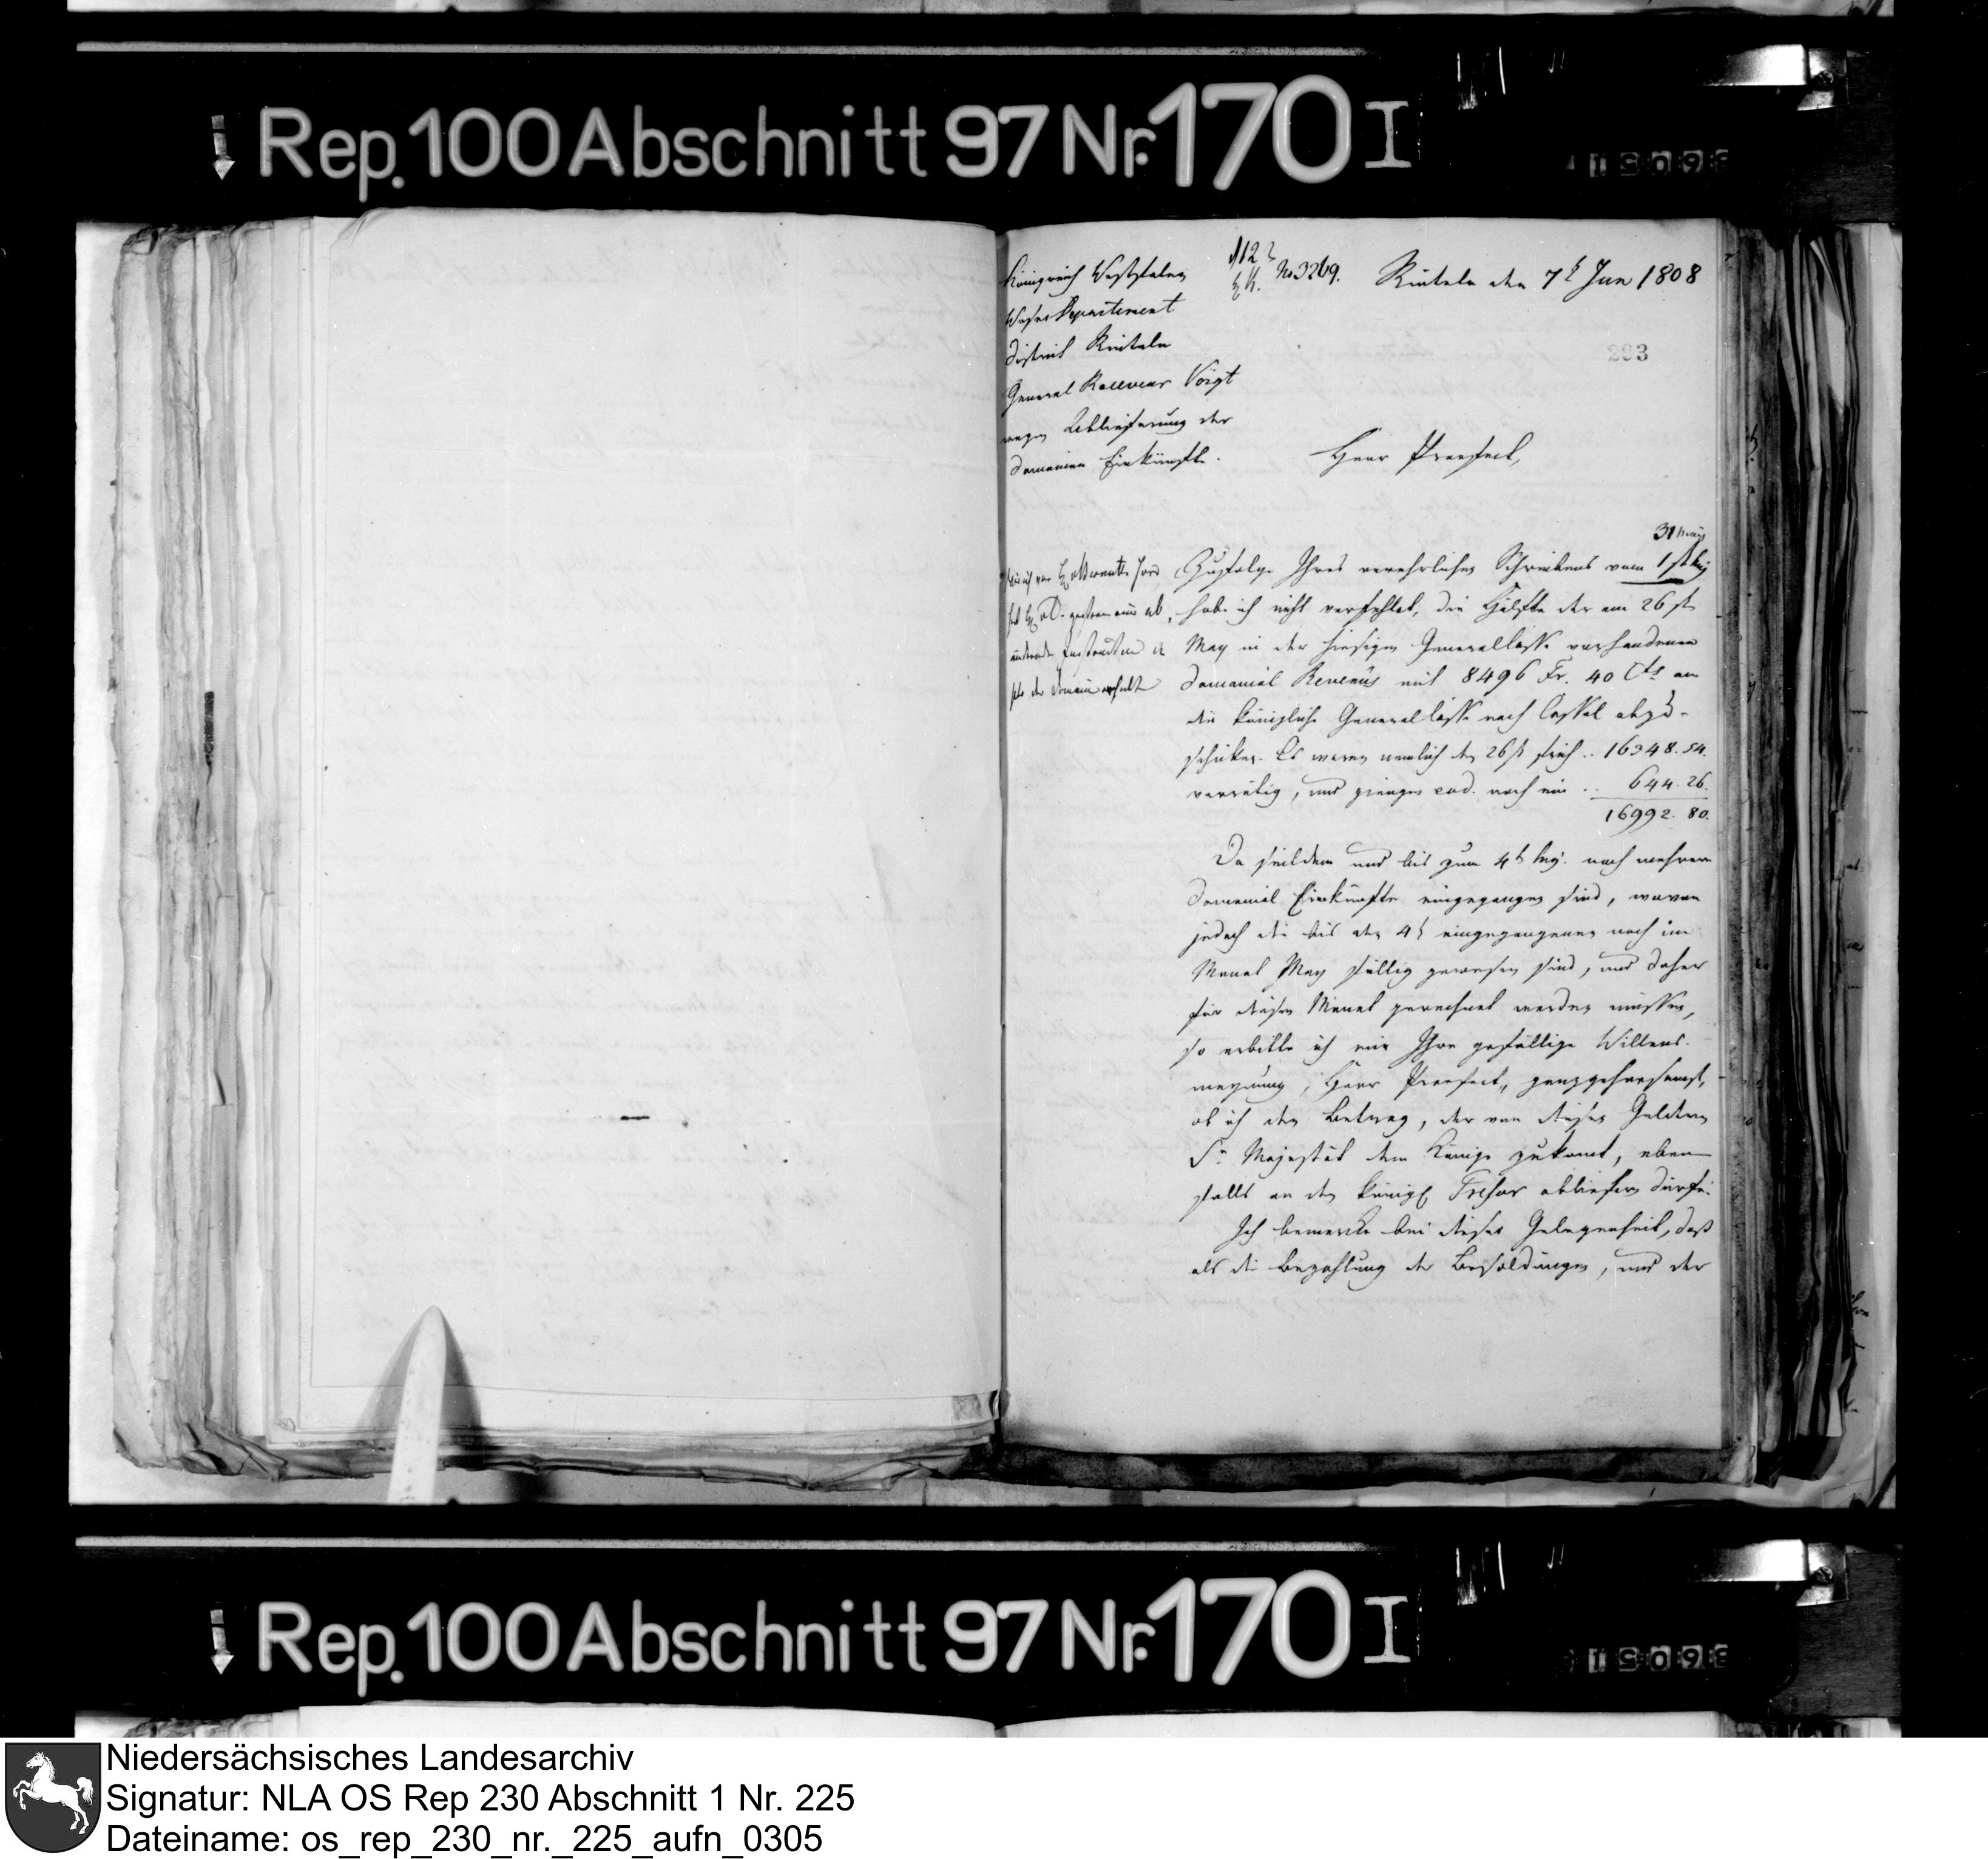 Rep. 100 Abschnitt 97 Nr. 170 I
Königreich Westfalen
Weser Departement
District Rinteln
General Receveur Voigt
wegen Ablieferung der
Domainen Einkünfte.
No 3269.
Rinteln den 7t Jun 1808
293
Herr Praefect,
31 May
Zufolge Ihres verehrlichen Schreibens vom 1st huj
habe ich nicht verfehlet, die Hälfte der am 26st
May in der hiesigen Generalcasse vorhandenen
Domanial Revenüs mit 8496 Fr. 40 Cts an
die königliche Generalcasse nach Cassel abzu-
schicken. Es waren nemlich den 26st früh .. 16348. 54.
vorrätig, und giengen eod. noch ein .. 644. 26.
16992. 80.
Da seitdem und bis zum 4t huj. noch mehrere
Domanial Einkünfte eingegangen sind, wovon
jedoch die bis den 4t eingegangenen noch im
Monat May fällig gewesen sind, und daher
für diesen Monat gerechnet werden müssen,
so erbitte ich mir Ihre gefällige Willens-
meynung, Herr Praefect, ganzgehorsamst,
ob ich den Betrag, der von diesen Geldern
Sr Majestät dem Könige zukomt, eben
falls an den königl Tresor abliefern dürfe.
Ich bemerke bei dieser Gelegenheit, daß
als die Bezahlung der Besoldungen, und der
Rep. 100 Abschnitt 97 Nr. 170 I
Niedersächsisches Landesarchiv
Signatur: NLA OS Rep 230 Abschnitt 1 Nr. 225
Dateiname: os_rep_230_nr._225_aufn_0305